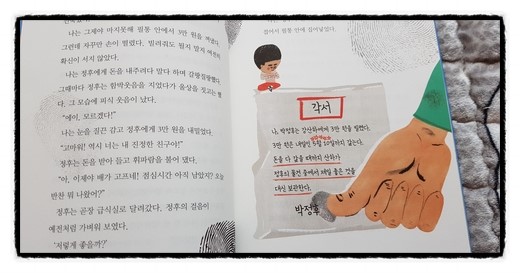 나는 그제야 마지못해 필통 안에서 3만 원을 꺼냈다.
그런데 자꾸만 손이 떨렸다. 빌려줘도 될지 말지 여전히
확신이 서지 않았다.
나는 정후에게 돈을 내주려다 말다 하며 갈팡질팡했다.
그때마다 정후는 함박웃음을 지었다가 울상을 짓고는 했
다. 그 모습에 피식 웃음이 났다.
“에이, 모르겠다!”
나는 눈을 질끈 감고 정후에게 3만 원을 내밀었다.
“고마워! 역시 너는 내 진정한 친구야!”
정후는 돈을 받아 들고 휘파람을 불어 댔다.
“아, 이제야 배가 고프네! 점심시간 아직 남았지? 오늘
반찬 뭐 나왔어?”
정후는 곧장 급식실로 달려갔다. 정후의 걸음이
예전처럼 가벼워 보였다.
‘저렇게 좋을까?’
접어서 필통 안에 집어넣었다.
각서
나, 박정후는 강산하에게 3만 원을 빌렸다.
3만 원은 5월 10일까지 갚는다.
돈을 다 갚을 때까지 산하가
정후의 물건 중에서 제일 좋은 것을
대신 보관한다.
박정후